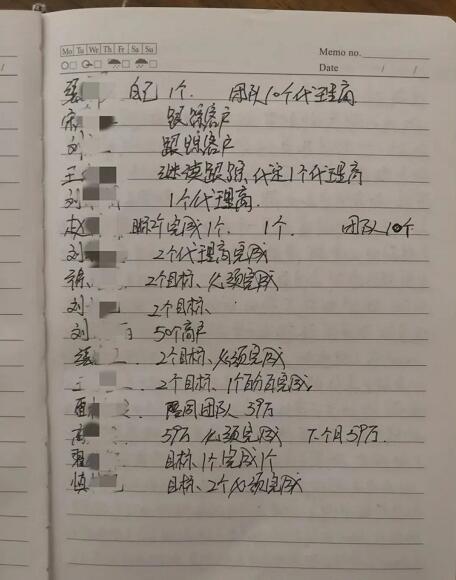 Mo Tu We Th Fr Sa Su
Memo no.
Date / /
自己 1个. 团队10个代理商
宋 跟踪客户
刘 跟踪客户
王 继续跟踪, 代定1个代理商
刘 1个代理商.
赵 完成1个. 1个. 团队10个
刘 2个代理商完成
2个目标、必须完成
刘 2个目标、
刘 50个商户
2个目标、必须完成
王 2个目标、1个百分百完成
团队 39万
高 59万 必须完成 下个月59万.
目标、1个完成1个
慎 目标、2个必须完成